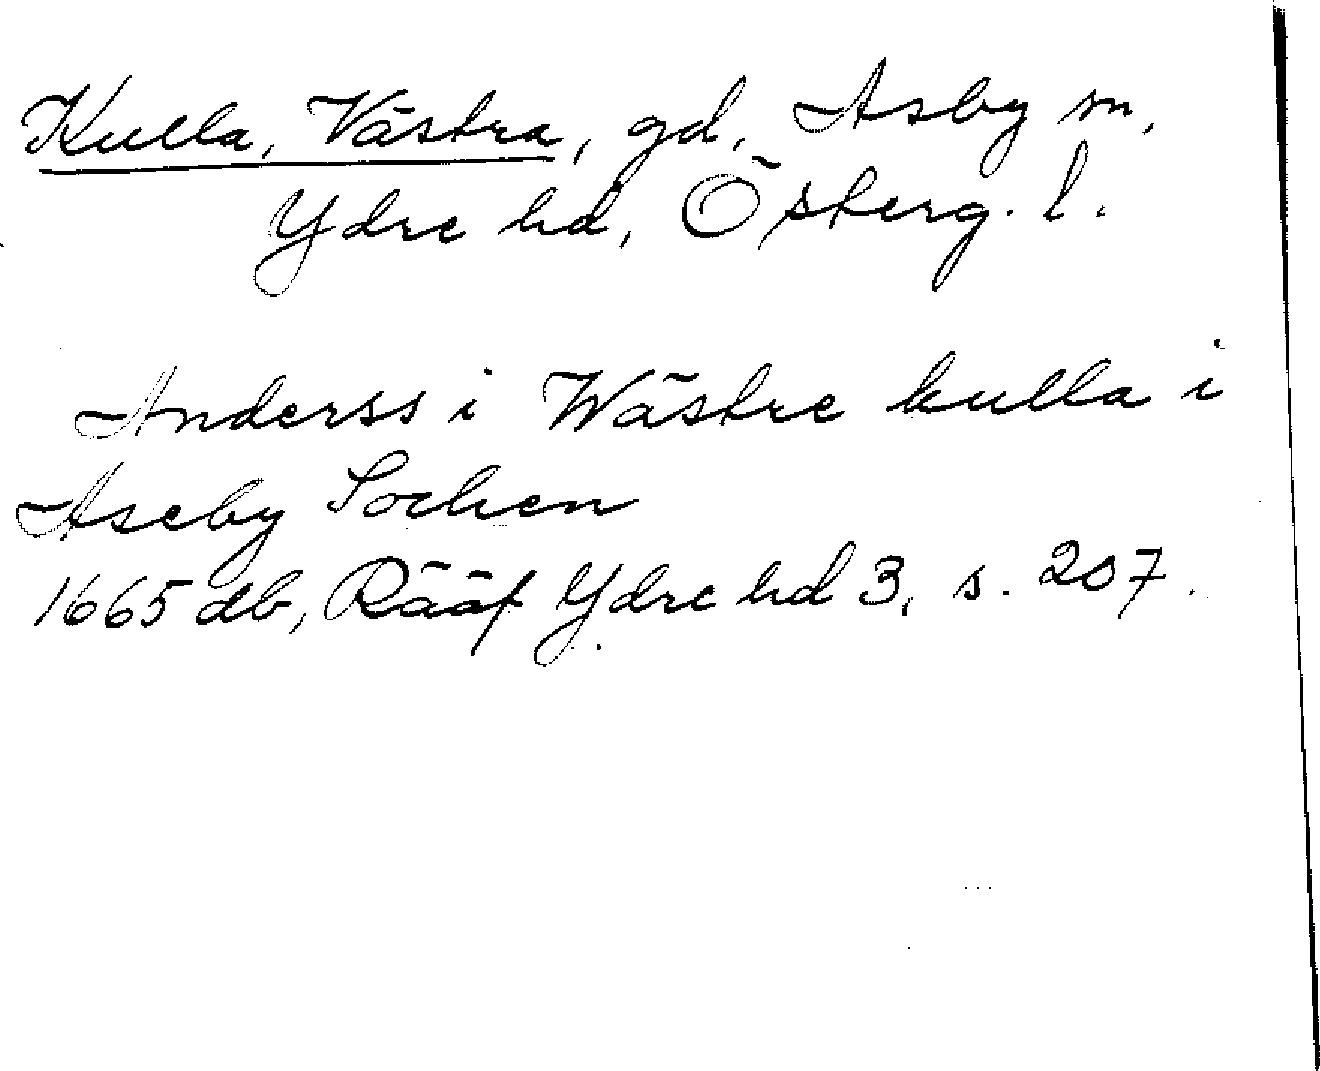 Kulla, Västra, gd, Asby sn,
Ydre hd, Österg. l.
Anderss i Wästre kulla i
Aseby Sochen
1665 db, Rääf Ydre hd 3, s. 207.